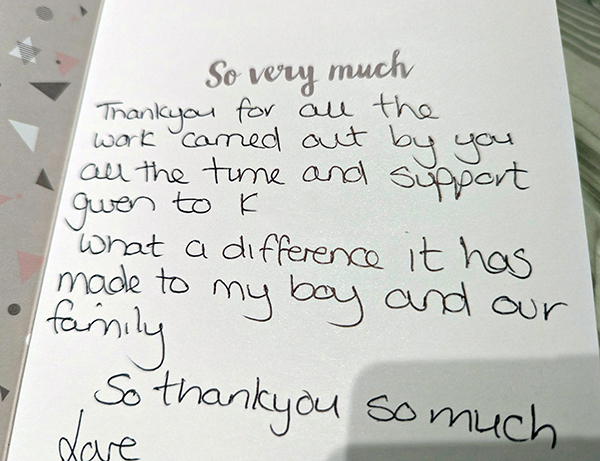 So very much
Thankyou for all the
work carried out by you
all the time and support
given to K
What a difference it has
made to my boy and our
family
So thankyou so much
Love